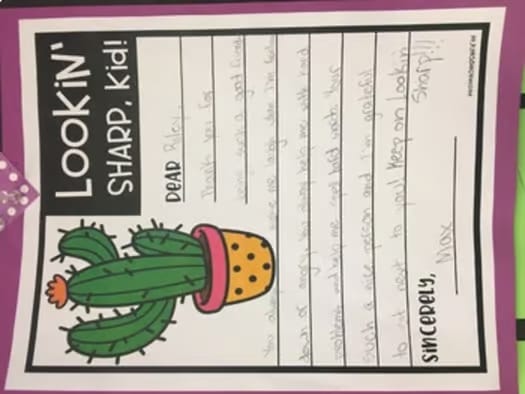 LOOKIN'
SHARP, kid!
DEAR Riley,
Thank you for
being such a good friend.
You always make me laugh when I'm feeling
down or angry. You always help me with hard
problems and help me spell hard words. Your
such a nice person and I'm grateful
to sit next to you! Keep on Lookin
Sharp!!!
SINCERELY,
Max